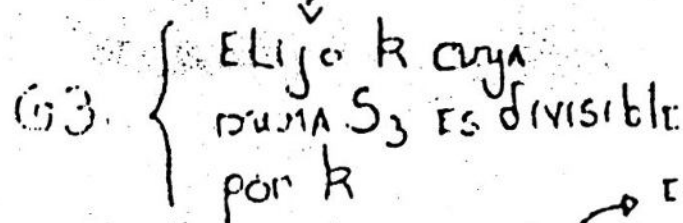 G3. { Elijo k cuya
suma S₃ es divisible
por k